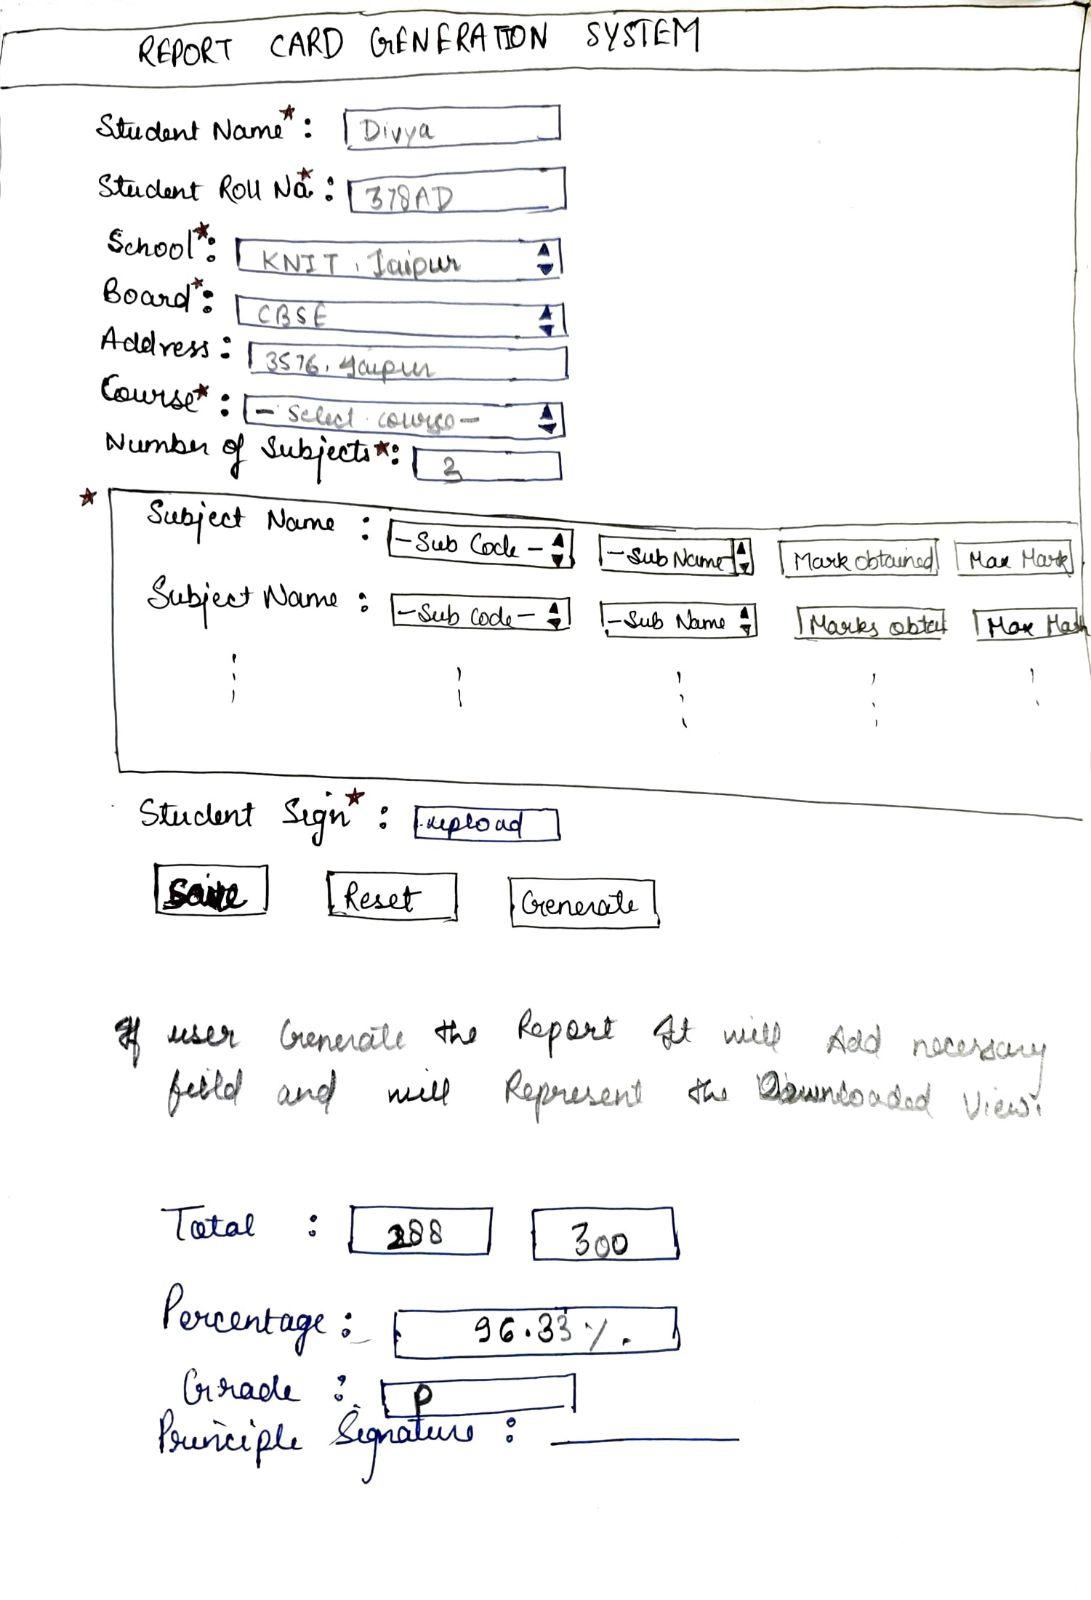 REPORT CARD GENERATION SYSTEM
Student Name* : Divya
Student Roll No* : 378AD
School* : KNIT, Jaipur
Board* : CBSE
Address : 3576, Jaipur
Course* : - Select course -
Number of Subjects* : 3
*
Subject Name : -Sub Code- -Sub Name- Mark obtained Max Mark
Subject Name : -Sub Code- -Sub Name Marks obtai Max Mark
Student Sign* : upload
Save Reset Generate
If user Generate the Report It will Add necessary
field and will Represent the Downloaded View.
Total : 288 300
Percentage : 96.33 %.
Grade : P
Principle Signature :